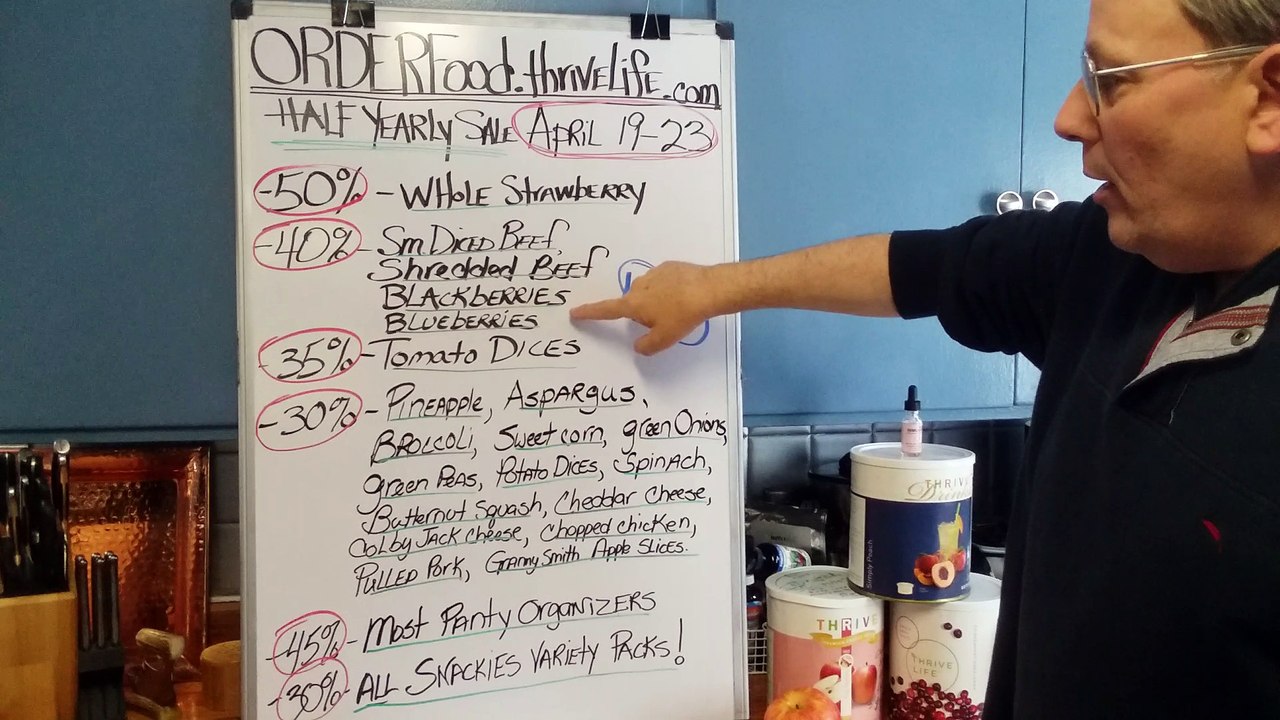 ORDERFood.thriveLife.com
HALF YEARLY SALE APRIL 19-23
-50% - WHOLE STRAWBERRY
-40% - Sm DICED BEEF,
Shredded BEEF
BLACKBERRIES
BLUEBERRIES
-35% - TOMATO DICES
-30% - PINEAPPLE, ASPARGUS,
BROLCOLI, SWEET CORN, green Onions,
green PEAS, POTATO DICES, SPINACH,
Butternut Squash, Cheddar Cheese,
COLBY JACK CHEESE, Chopped chicken,
PULLED PORK, GRANNY SMITH APPLE SLICES.
-45% - MOST PANTY ORGANIZERS
-30% - ALL SNACKIES VARIETY PACKS!
THRIVE
Drinks
Simply Peach
THRIVE
THRIVE
LIFE